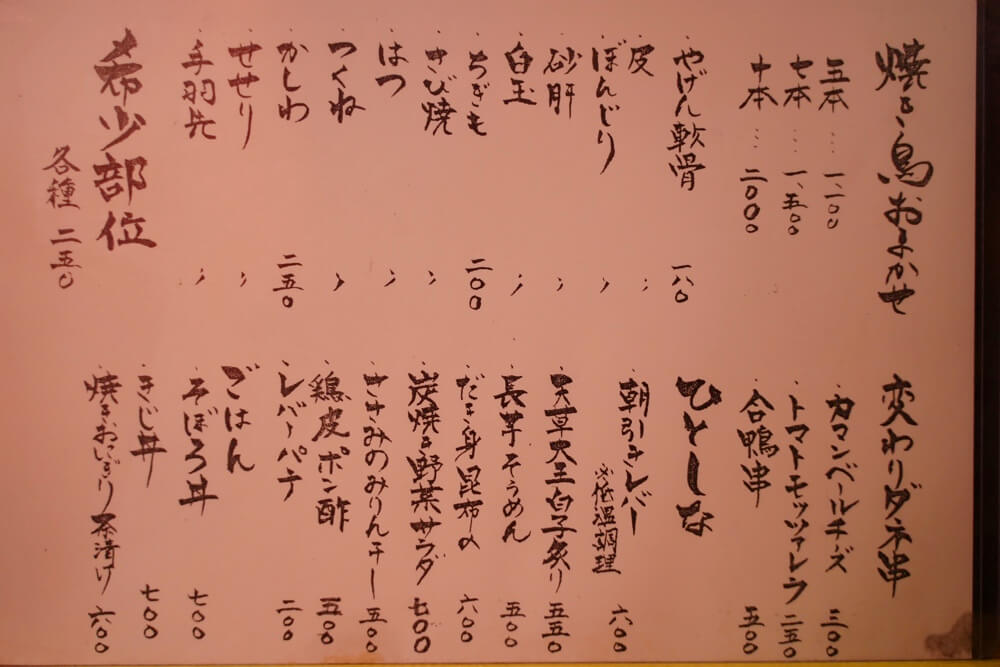 焼き鳥おまかせ
五本…一、二〇〇
七本…一、五〇〇
十本…二〇〇〇
・やげん軟骨 一八〇
・皮 〃
・ぼんじり 〃
・砂肝 〃
・白玉 〃
・ちぎも 二〇〇
・きび焼 〃
・はつ 〃
・つくね 〃
・かしわ 二五〇
・せせり 〃
・手羽先 〃
希少部位
各種 二五〇
変わりダネ串
・カマンベールチーズ 三〇〇
・トマトモッツァレラ 二五〇
・合鴨串 五〇〇
ひとしな
・朝引きレバー 六〇〇
※低温調理
・天草大王白子炙り 五五〇
・長芋そうめん 五〇〇
・だき身昆布〆 六〇〇
・炭焼き野菜サラダ 七〇〇
・ささみのみりん干し 五〇〇
・鶏皮ポン酢 五〇〇
・レバーパテ 二〇〇
ごはん
・そぼろ丼 七〇〇
・きじ丼 七〇〇
・焼きおにぎり茶漬け 六〇〇